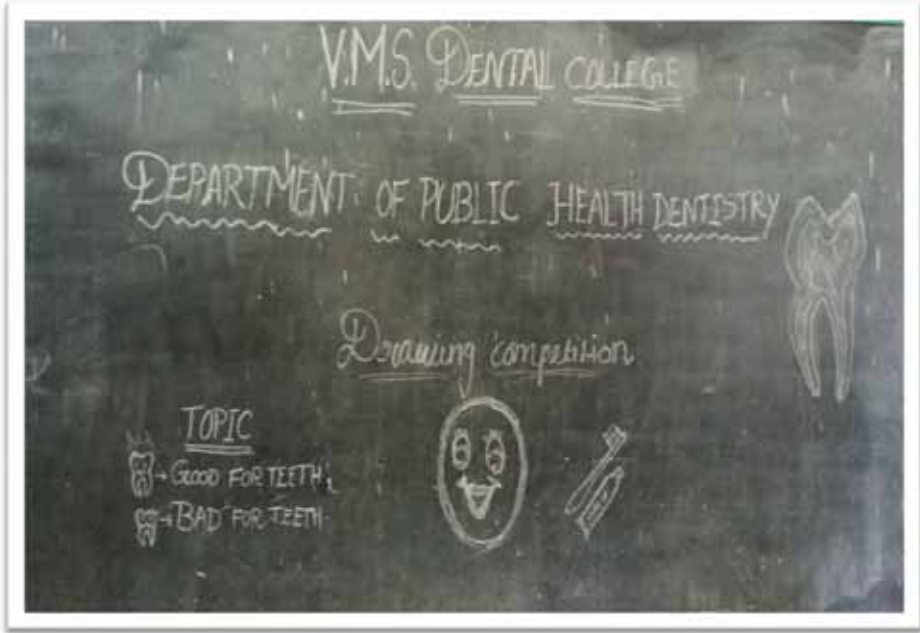 V.M.S. DENTAL COLLEGE
DEPARTMENT OF PUBLIC HEALTH DENTISTRY
Drawing competition
TOPIC
→ GOOD FOR TEETH,
→ "BAD" FOR TEETH